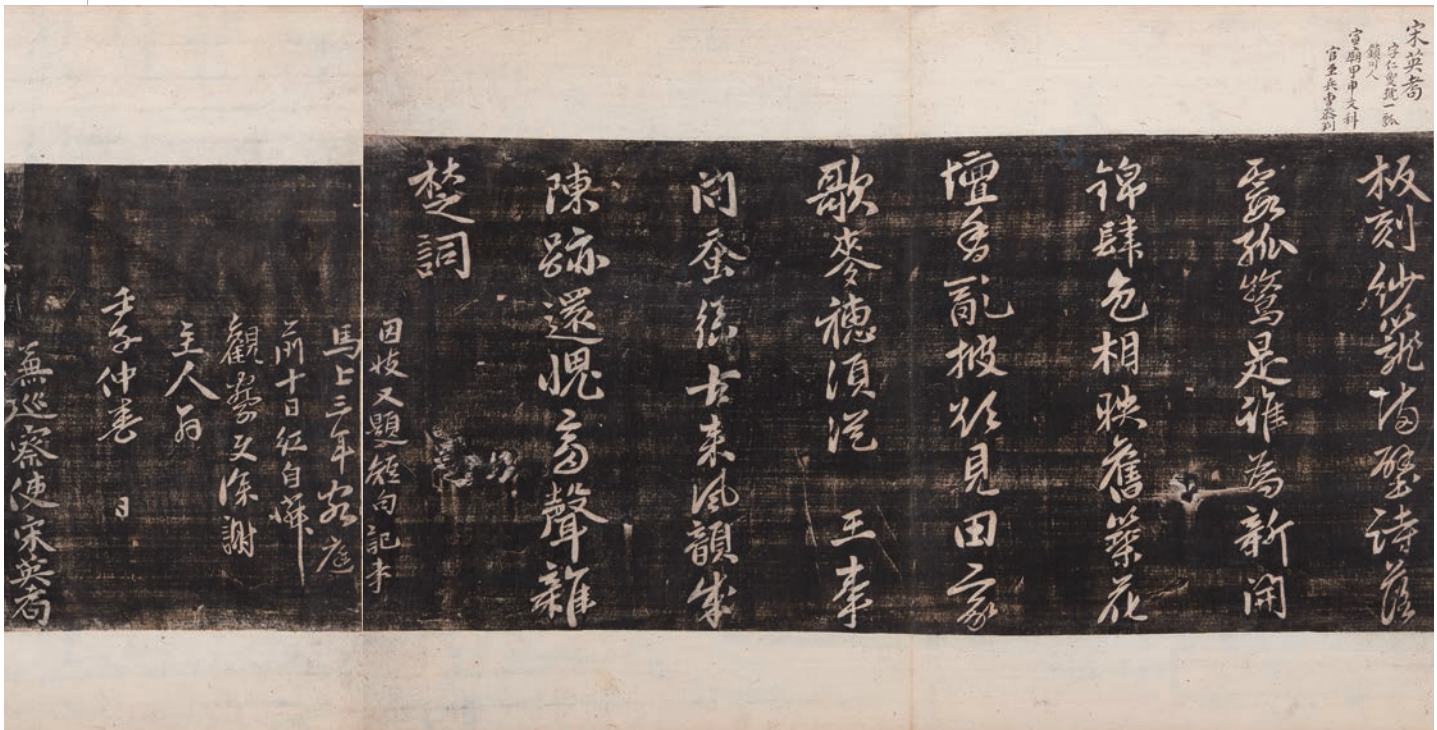 宋英耉
字仁叟號一瓢
鎭川人
宣廟甲申文科
官至兵曹參判
板刻紗籠壁詩落
霞孤鶩是誰為新開
錦肆色相映舊築花
壇香亂披欲見田家
歌麥穗須從 王事
問蚕絲古来風韻成
陳跡還愧高聲雜
楚詞
因妓又題短句記事
馬上三年客庭
前十日紅自憐
觀又深謝
主人翁
壬子仲春 日
兼巡察使宋英耉